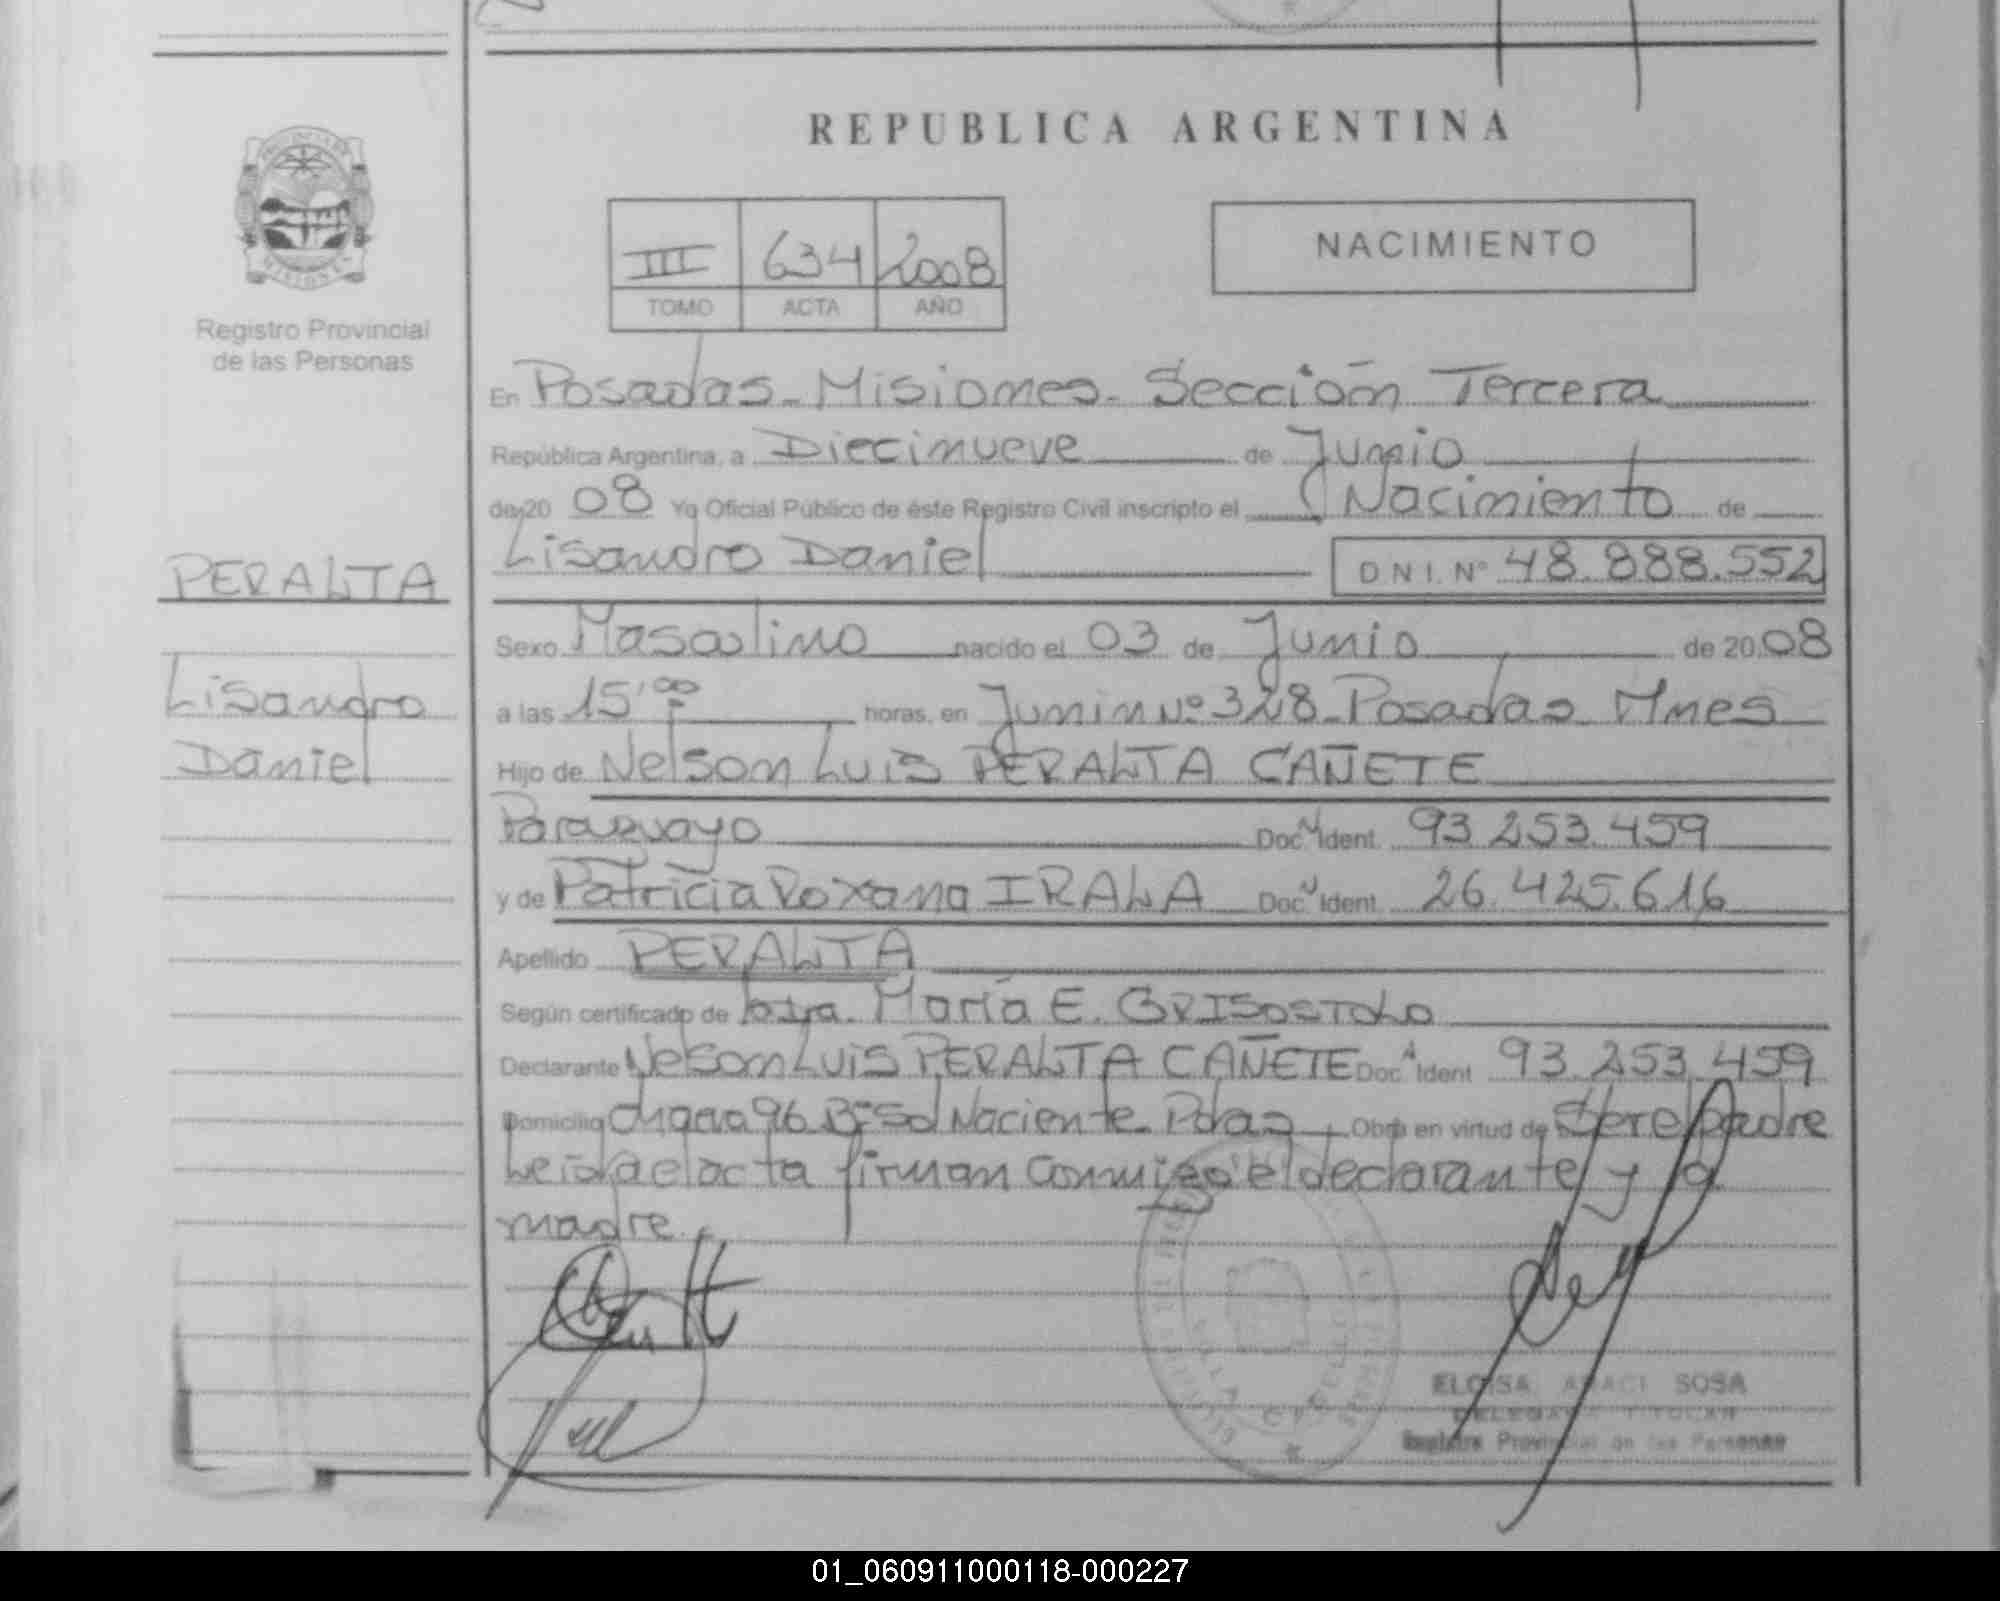 REPUBLICA ARGENTINA
III 634 2008
TOMO ACTA AÑO
NACIMIENTO
Registro Provincial
de las Personas
PERALTA
Lisandro
Daniel
En Posadas - Misiones - Sección Tercera
República Argentina, a Diecinueve de Junio
de 20 08 Yo Oficial Público de éste Registro Civil inscripto el Nacimiento de
Lisandro Daniel D.N.I. Nº 48.888.552
Sexo Masculino nacido el 03 de Junio de 20 08
a las 15,00 horas, en Junin Nº 328 - Posadas - Mnes
Hijo de Nelson Luis PERALTA CAÑETE
Paraguayo Doc. Ident. 93.253.459
y de Patricia Roxana IRALA Doc. Ident. 26.425.616
Apellido PERALTA
Según certificado de María E. GRISOSTOLO
Declarante Nelson Luis PERALTA CAÑETE Doc. Ident 93.253.459
Domicilio 96 Bº Sol Naciente - Pdas Obra en virtud de Ser el padre
Leida el acta firman conmigo el declarante y la
madre.
ELOISA ARACI SOSA
DELEGADA TITULAR
Registro Provincial de las Personas
01_060911000118-000227